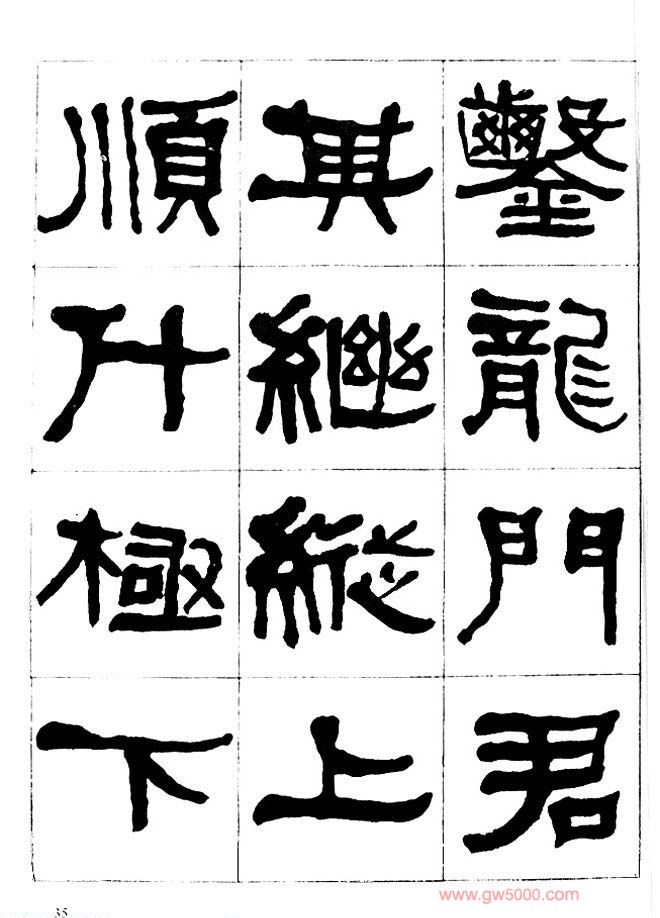 鑿龍門君
其繼縱上
順斗極下
35
www.gw5000.com